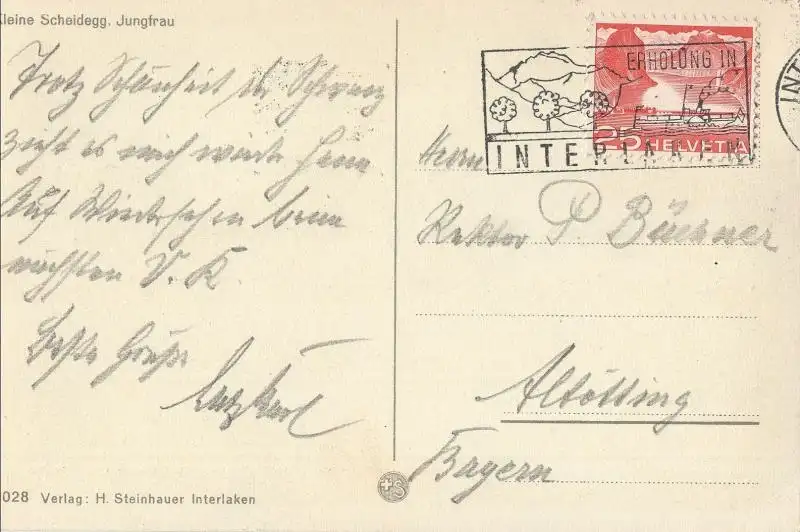 Kleine Scheidegg, Jungfrau
Trotz Schönheit der Schweiz
zieht es mich wieder heim
Auf Wiedersehen beim
nächsten V. K.
Beste Grüße
ERHOLUNG IN
INTERLAKEN
25 HELVETIA
INT
Herrn
Rektor P. Büchner
Altötting
Bayern
028 Verlag: H. Steinhauer Interlaken
S